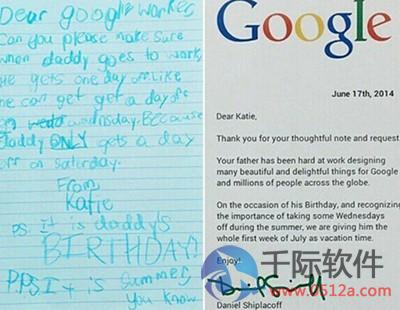 Dear google worker
Can you please make sure
when daddy goes to work,
he gets one day off. Like
he can get get a day off
on wednsday. Because
daddy ONLY gets a day
off on saturday.
From
Katie
ps. It is daddy's
BIRTHDAY!
PPS It is summer,
you know
Google
June 17th, 2014
Dear Katie,
Thank you for your thoughtful note and request.
Your father has been hard at work designing
many beautiful and delightful things for Google
and millions of people across the globe.
On the occasion of his Birthday, and recognizing
the importance of taking some Wednesdays
off during the summer, we are giving him the
whole first week of July as vacation time.
Enjoy!
Daniel Shiplacoff
千际软件
www.0512a.com